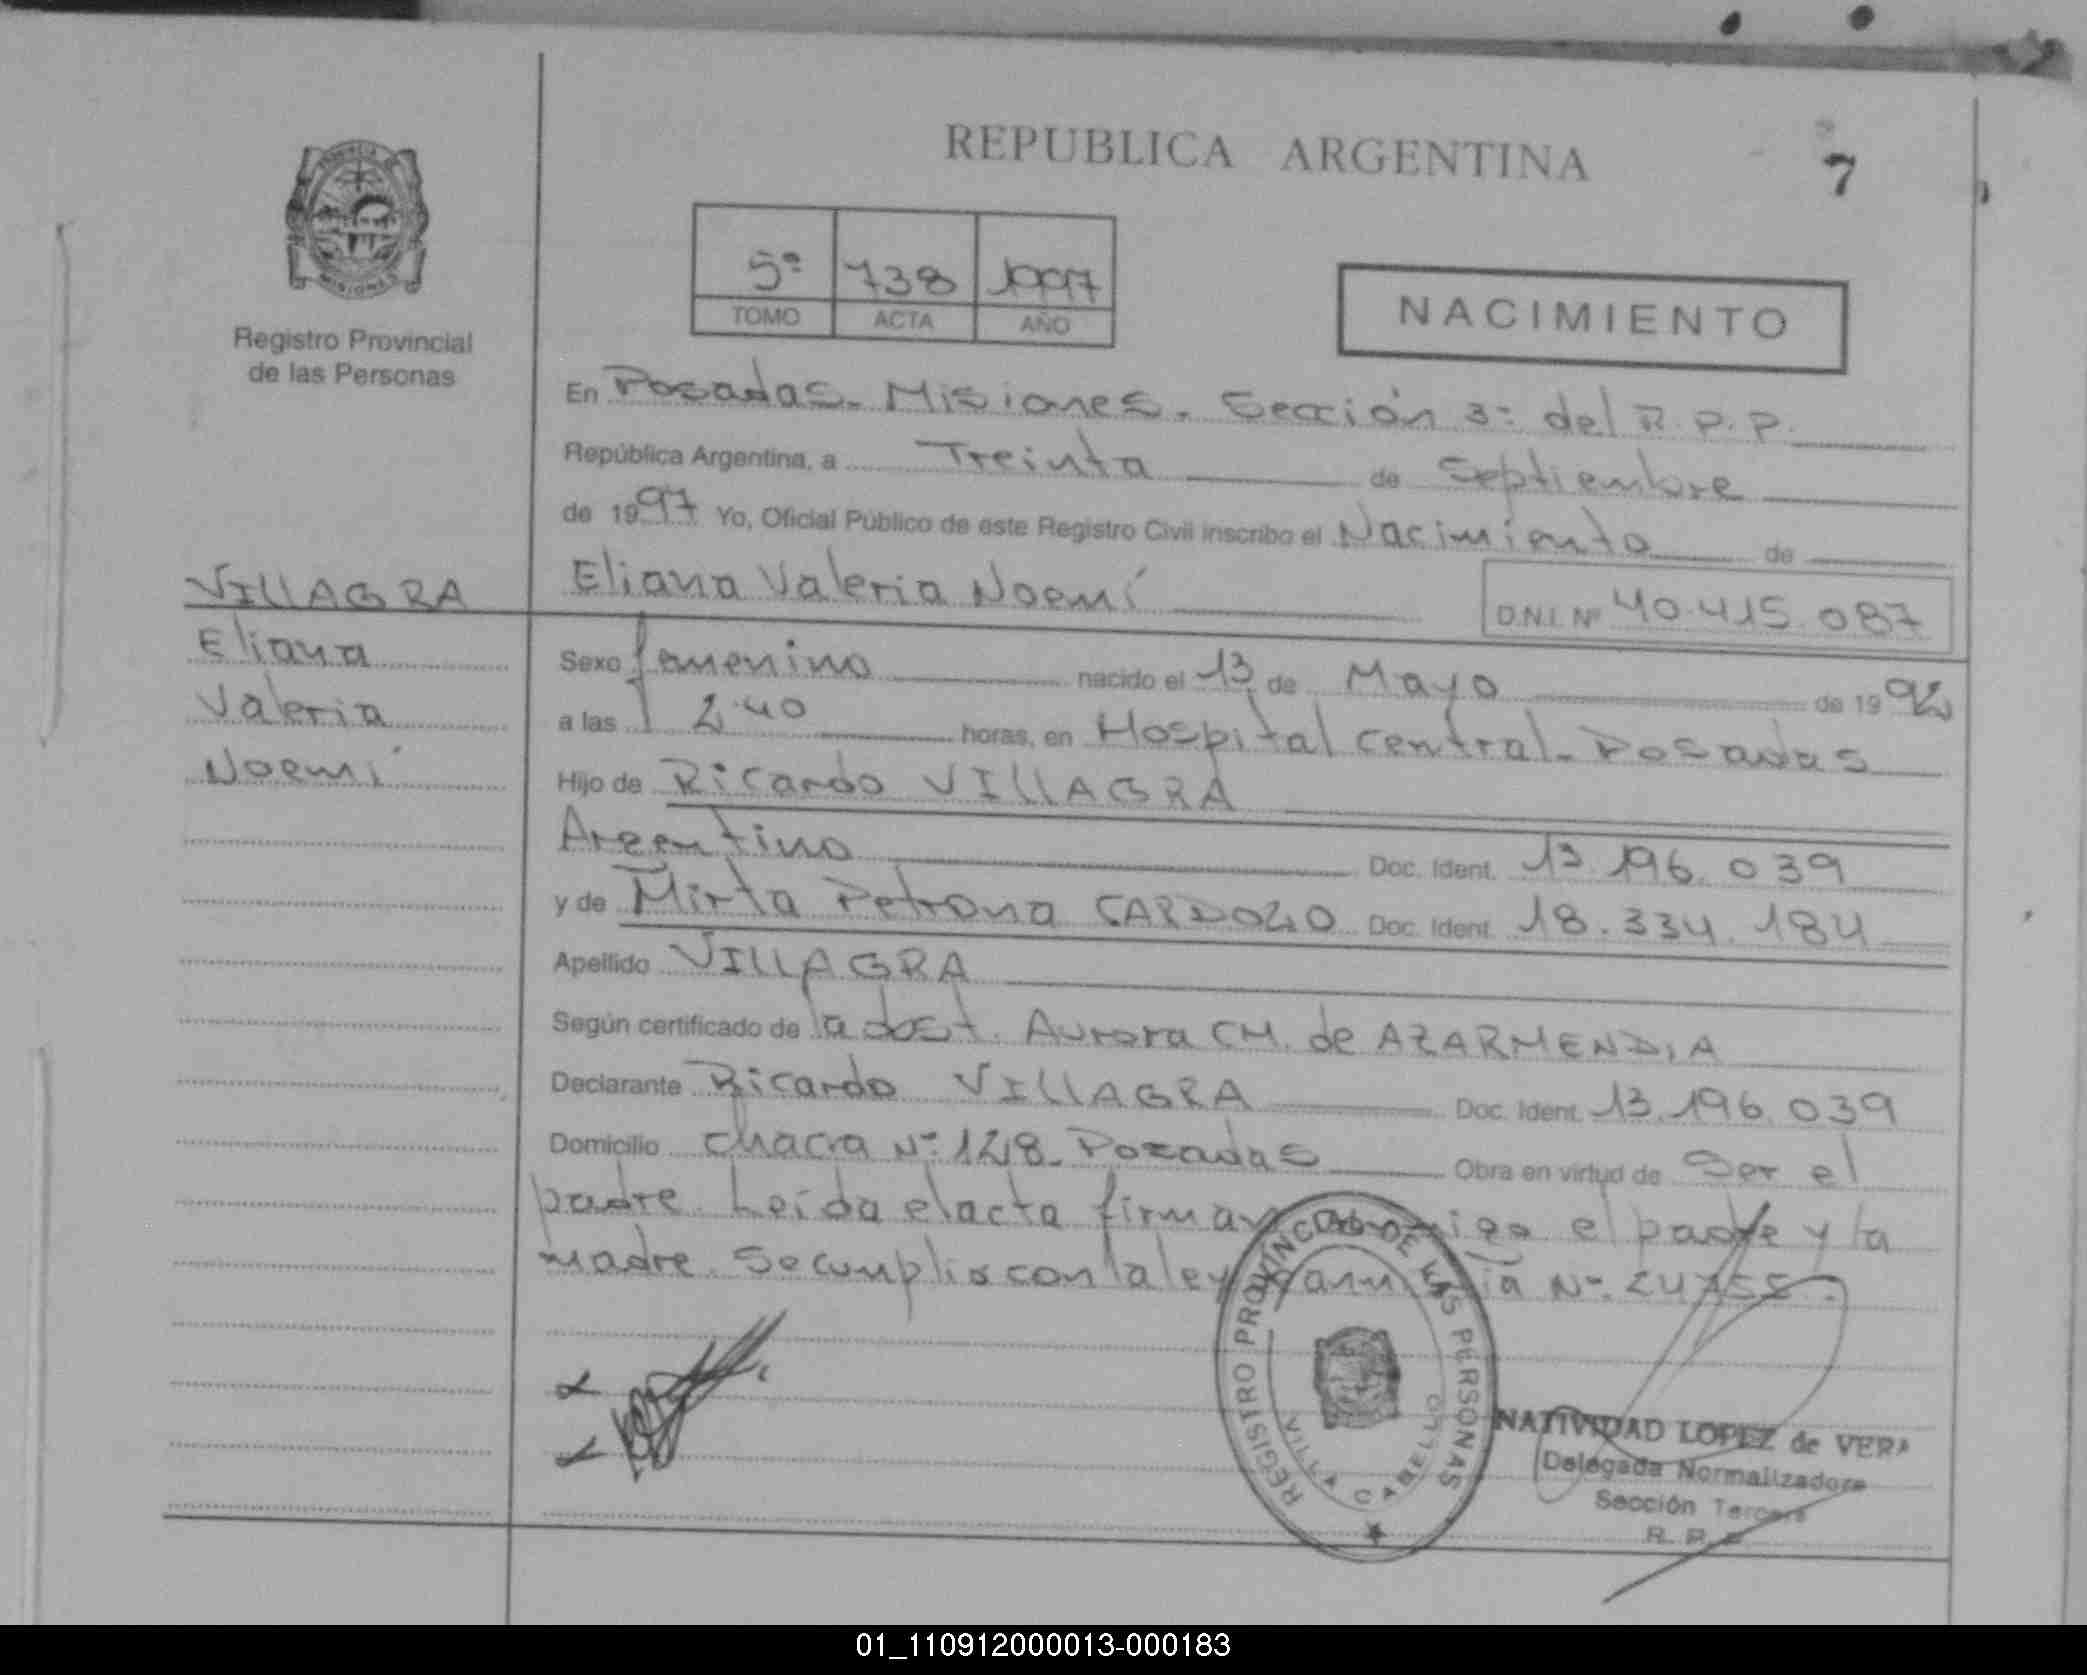 REPUBLICA ARGENTINA
7
PROVINCIA DE MISIONES
Registro Provincial
de las Personas
5º 738 1997
TOMO ACTA AÑO
NACIMIENTO
En Posadas - Misiones. Sección 3º del R.P.P.
República Argentina, a Treinta de Septiembre
de 1997 Yo, Oficial Público de este Registro Civil inscribo el Nacimiento de
Eliana Valeria Noemí
D.N.I. Nº 40.415.087
VILLAGRA
Eliana
Valeria
Noemí
Sexo femenino nacido el 13 de Mayo de 1992
a las 2.40 horas, en Hospital Central - Posadas
Hijo de Ricardo VILLAGRA
Argentino Doc. Ident. 13.196.039
y de Mirta Petrona CARDOZO Doc. Ident. 18.334.184
Apellido VILLAGRA
Según certificado de la Aurora CH. de AZARMENDIA
Declarante Ricardo VILLAGRA Doc. Ident. 13.196.039
Domicilio chacra Nº 128 - Posadas Obra en virtud de Ser el
padre. Leída el acta firman conmigo el padre y la
madre. Se cumplio con la ley Nº 24755.
REGISTRO PROVINCIAL DE LAS PERSONAS
VILLA CABELLO
NATIVIDAD LOPEZ de VERA
Delegada Normalizadora
Sección Tercera
R. P. P.
01_110912000013-000183